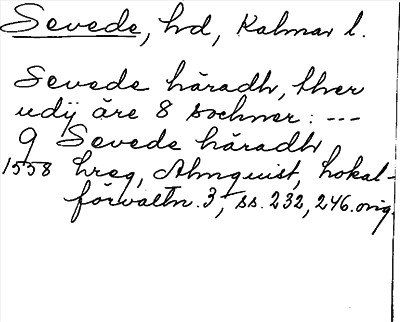 Sevede, hd, Kalmar l.
Sevede häradh, ther
udÿ äre 8 sochner: ---
9 Sevede häradh
1558 hreg, Almquist, Lokal-
förvaltn. 3, ss. 232, 246. orig.